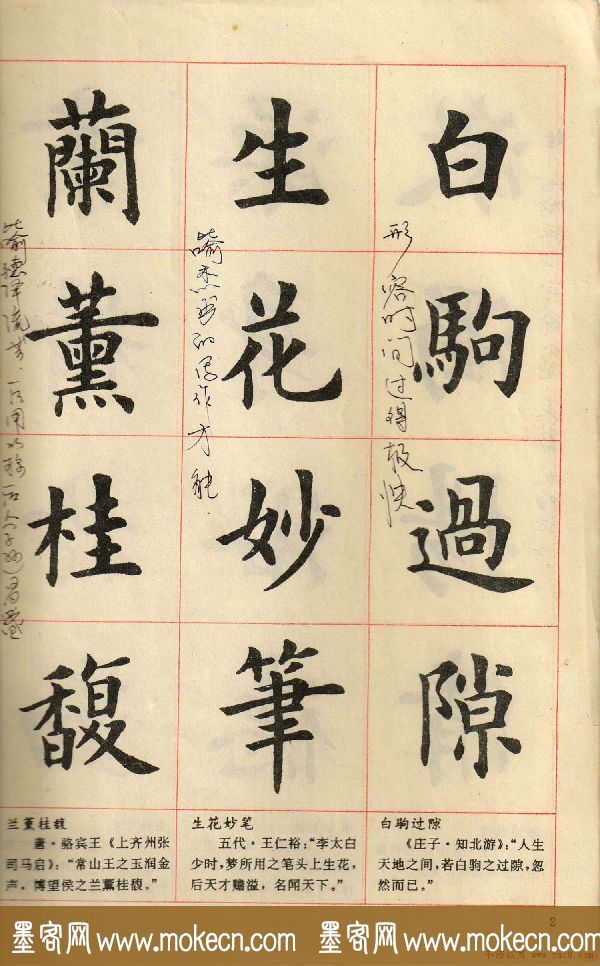 墨客网 www.mokecn.com 墨客网 www.mokecn.com
白駒過隙
形容时间过得极快
生花妙筆
喻杰出的写作才能.
蘭薰桂馥
喻德泽流芳.
白驹过隙
《庄子·知北游》：“人生
天地之间，若白驹之过隙，忽
然而已。”
生花妙笔
五代·王仁裕：“李太白
少时，梦所用之笔头上生花，
后天才赡溢，名闻天下。”
兰薰桂馥
唐·骆宾王《上齐州张
司马启》：“常山王之玉润金
声，博望侯之兰薰桂馥。”
2
墨客网 www.mokecn.com 墨客网 www.mokecn.com